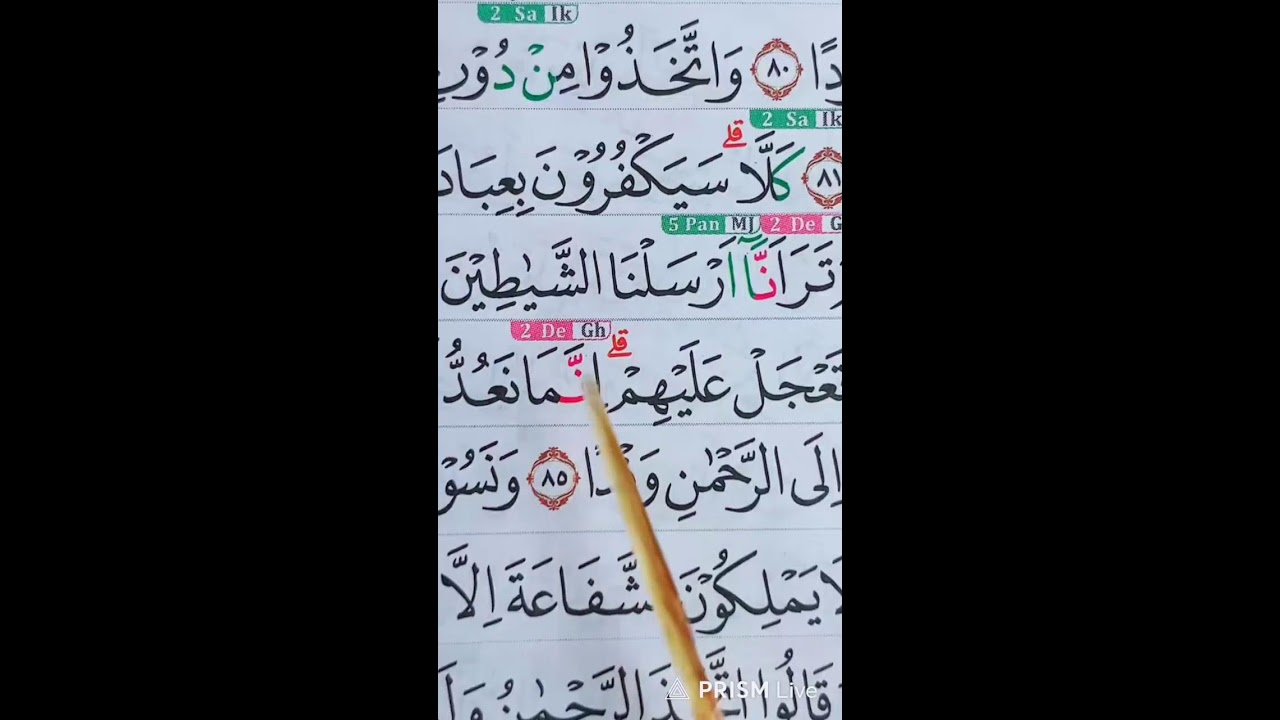 2 Sa Ik
دًا ۸۰ وَاتَّخَذُوْا مِنْ دُوْنِ
قلے 2 Sa Ik
۸۱ كَلَّا سَيَكْفُرُوْنَ بِعِبَادَ
5 Pan MJ 2 De G
تَرَ اَنَّآ اَرْسَلْنَا الشَّيٰطِيْنَ
2 De Gh قلے
تَعْجَلْ عَلَيْهِمْ اِنَّمَا نَعُدُّ
اِلَى الرَّحْمٰنِ وَفْدًا ۸٥ وَنَسُوْ
لَا يَمْلِكُوْنَ الشَّفَاعَةَ اِلَّا
قَالُوا اتَّخَذَ الرَّحْمٰنُ وَلَ
PRISM Live